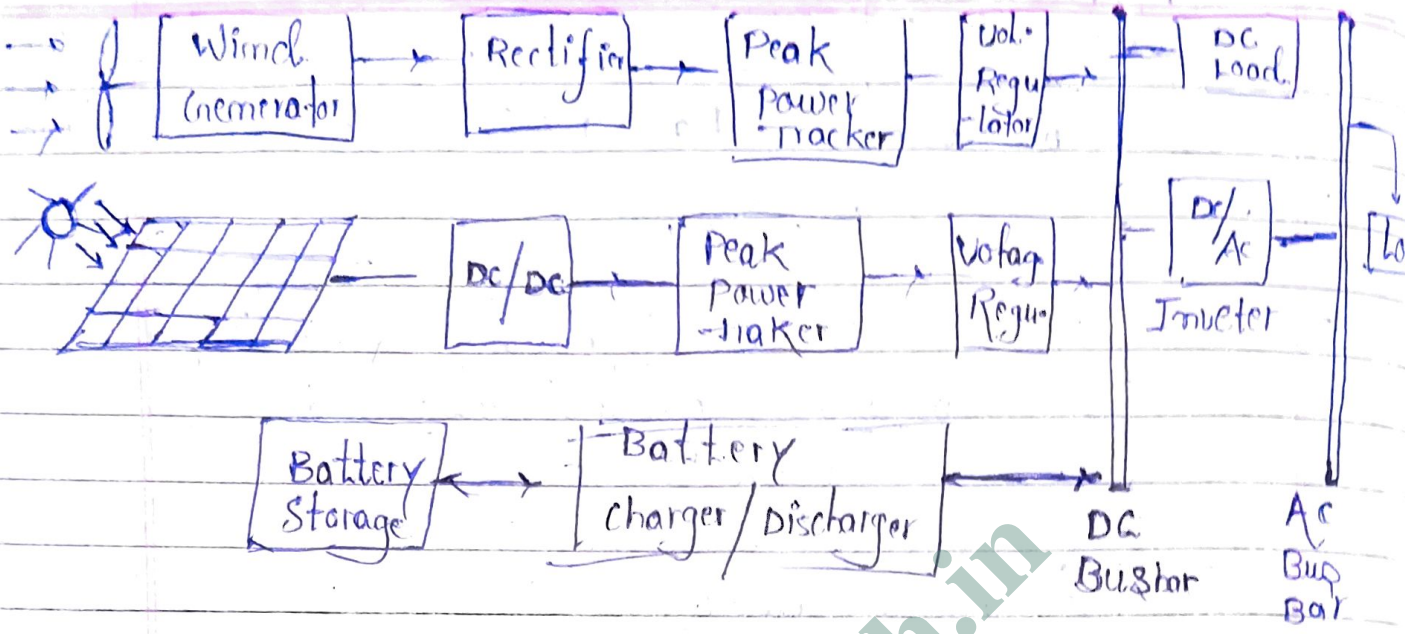 Wind
Generator
Rectifier
Peak
Power
Tracker
Vol.
Regu
-lator
DC
Load
DC/DC
Peak
Power
-traker
Votag
Regu.
DC/
AC
Inveter
Lo
Battery
Storage
Battery
Charger/Discharger
DC
Busbar
AC
Bus
Bar
h.in